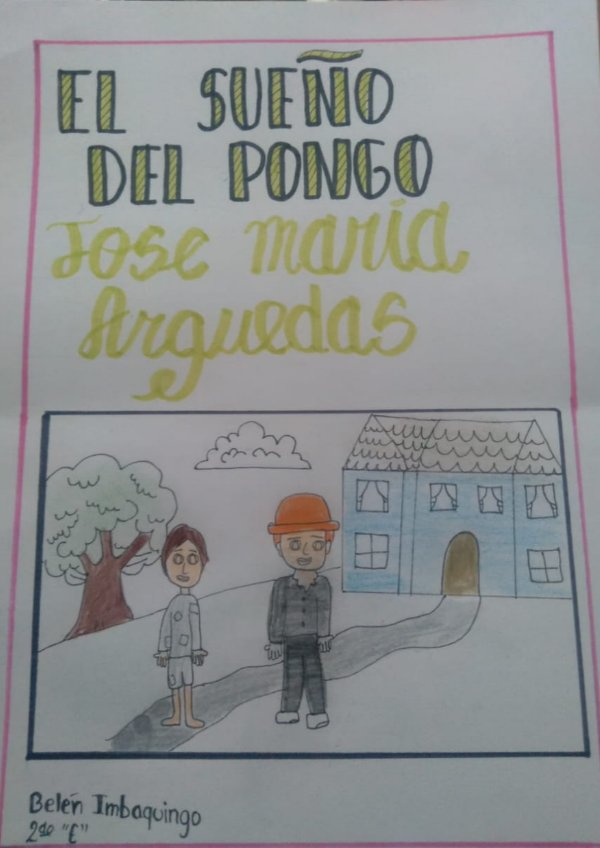 EL SUEÑO
DEL PONGO
Jose maría
Arguedas
Belén Imbaquingo
2do "E"